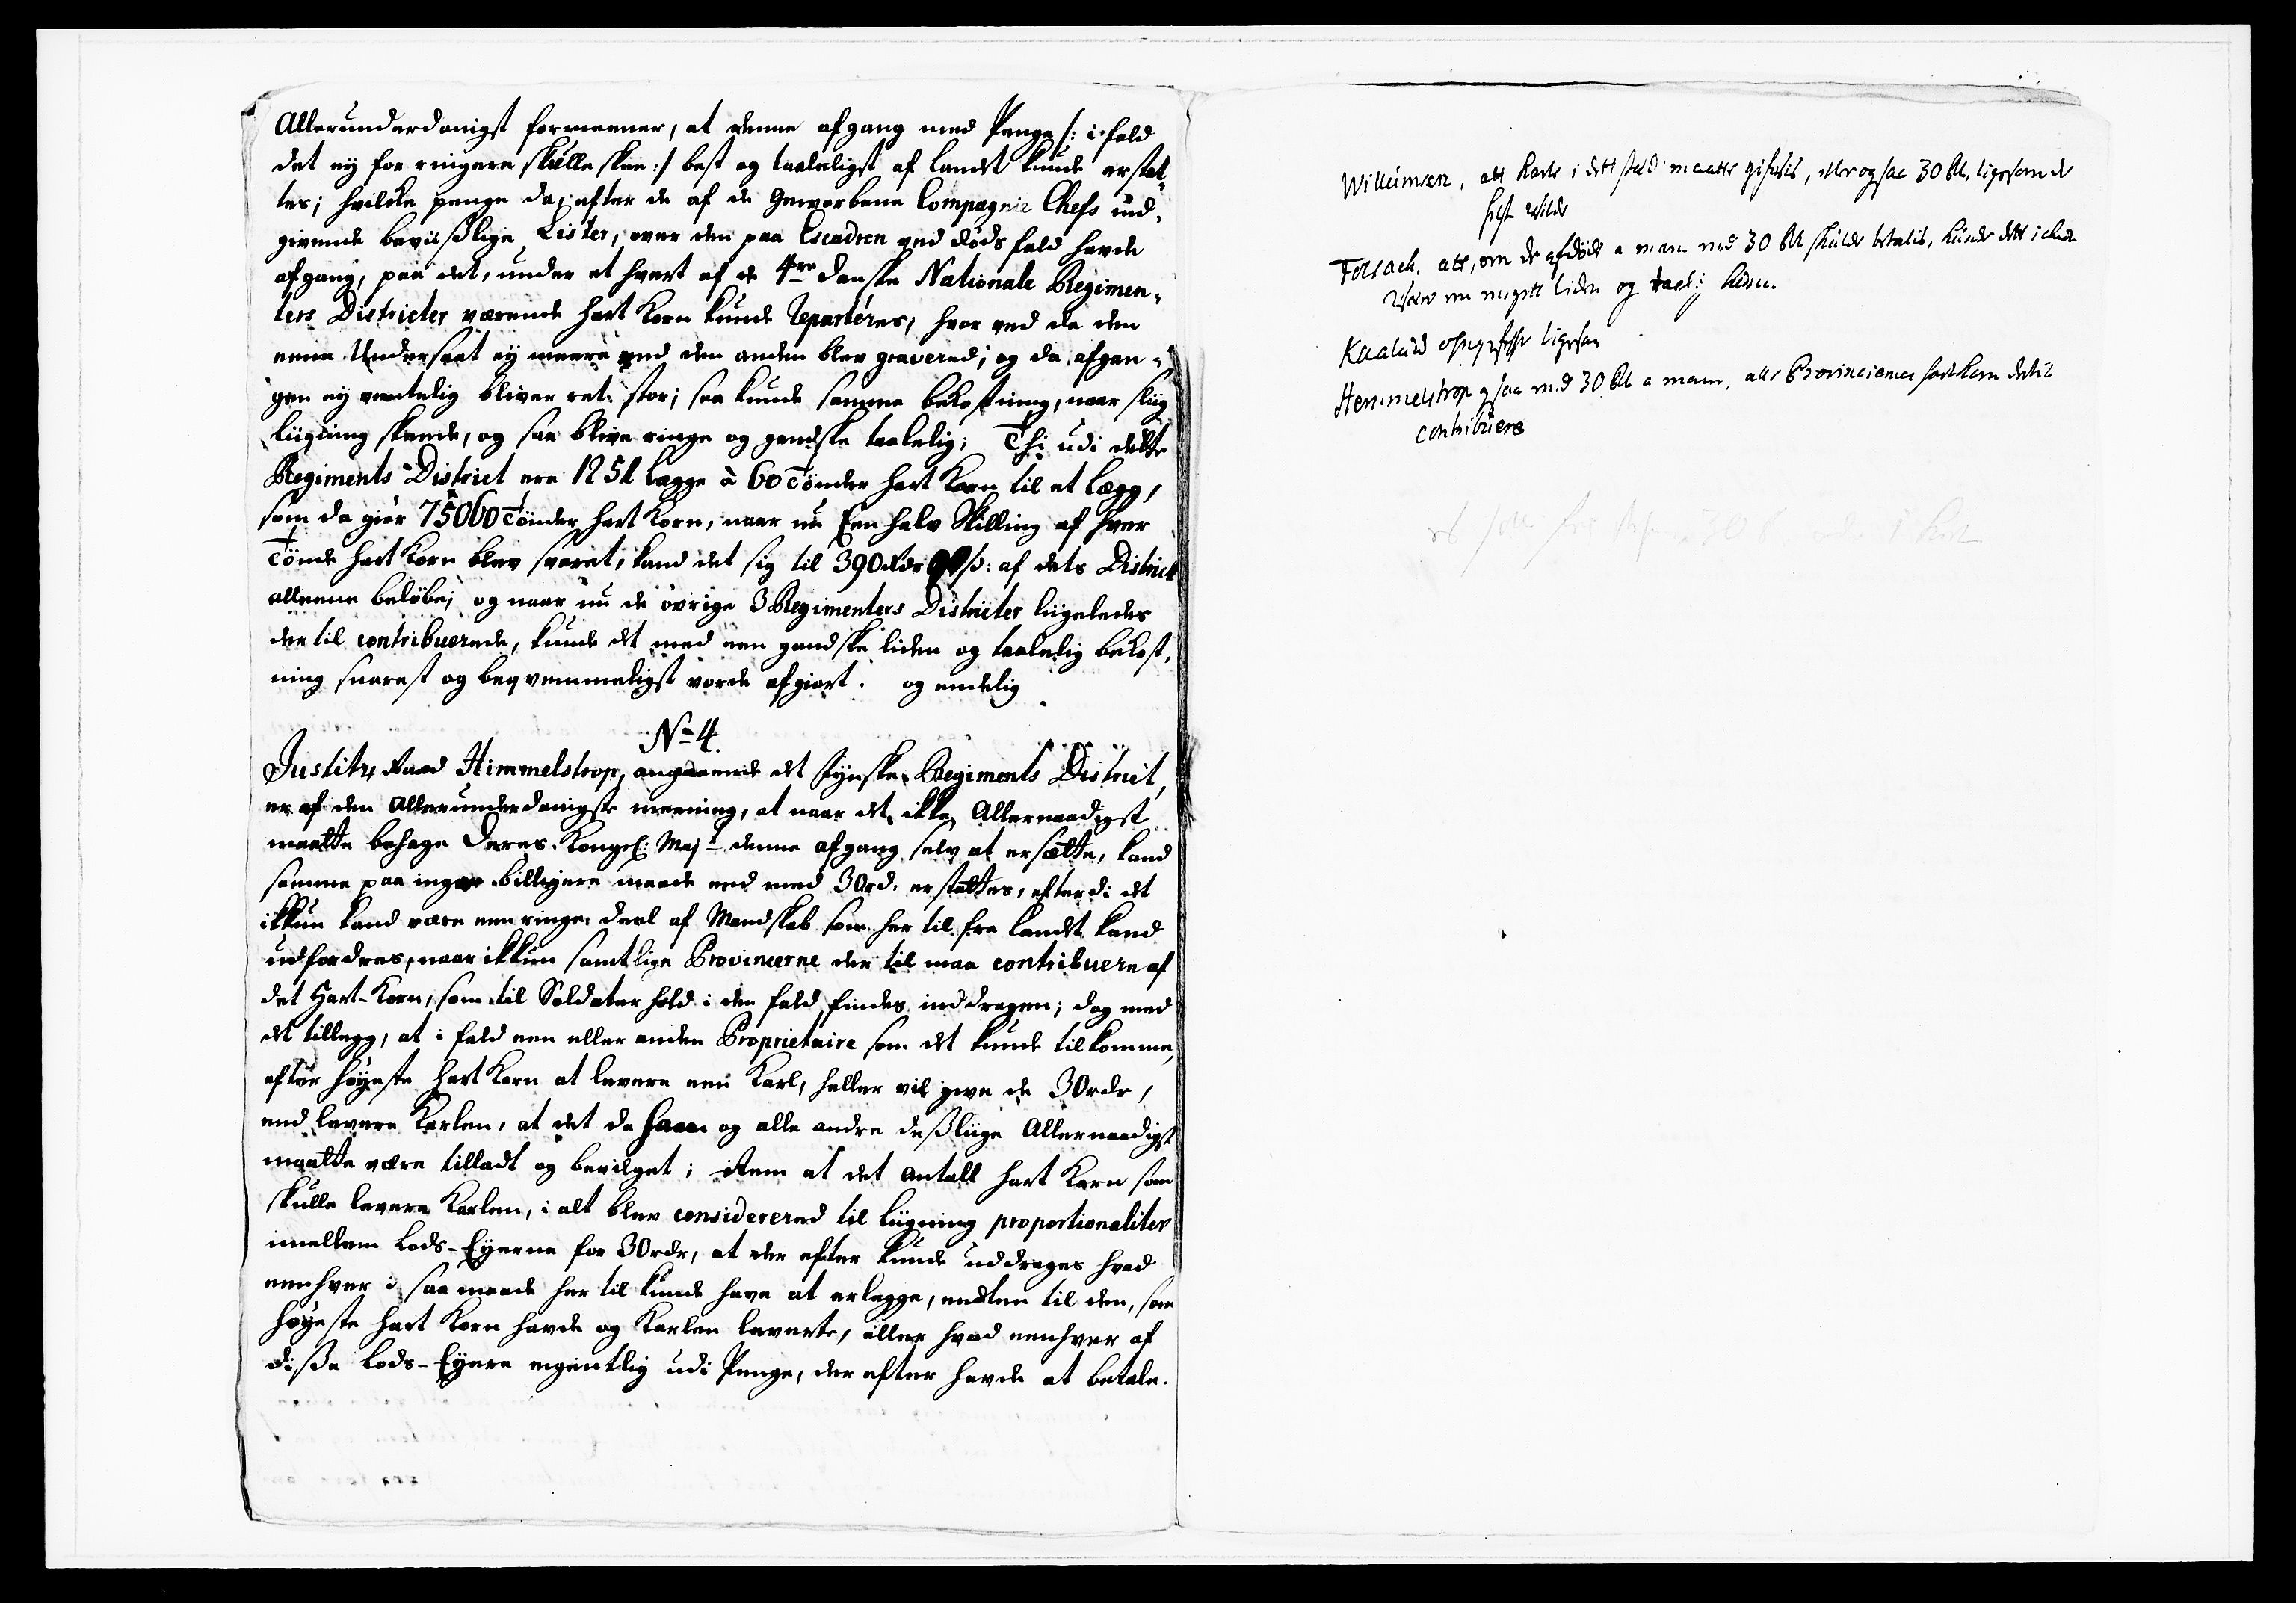 Allerunderdanigst formeener, at denne afgang med Penge /: i fald
det ey for ringere skulle skee :/ best og taaleligst af landet kunde erstat¬
tes; hvilke penge da, efter de af de Gevorbene Compagnie Chefs ind¬
givende beviislige Lister, over den paa Escadren ved döds fald havde
afgang, paa det, under et hvert af de 4re danske Nationale Regimen¬
ters Districter værende hart Korn kunde Reparteres, hvor ved da den
eene Undersaat ey meere end den anden blev gravered; og da afgan¬
gen ey ventelig bliver ret stor; saa kunde samme bekostning, naar slig
liigning skeede, og saa blive ringe og gandske taalelig; Thi udi dette
Regiments District ere 1251 lægge à 60 Tönder hart Korn til et Lægg,
som da giör 75060 Tönder hart Korn, naar nu Een halv Skilling af hver
Tönde hart Korn blev svaret, kand det sig til 390 Rdr ß: af dets District
alleene belöbe; og naar nu de övrige 3 Regimenters Districter liigeledes
der til contribuerede, kunde det med een gandske liden og taalelig bekost¬
ning snarest og beqvemmeligst vorde afgiort. og endelig
No 4.
Justitz Raad Himmelstrop, angaaende det Fynske Regiments District,
er af den Allerunderdanigste meening, at naar det ikke Allernaadigst
maatte behage Deres Kongel: Majt denne afgang selv at ersætte, kand
samme paa ingen billigere maade end med 30 rd. erstattes, efterdi det
ikkun kand være een ringe deel af Mandskab som her til fra landet kand
udfordres, naar ikkun samtlige Provincerne der til maa contribuere af
det Hart-Korn, som til Soldater hold i den fald findes inddragen; dog med
det tillegg, at i fald een eller anden Proprietaire som det kunde tilkomme,
efter höyeste hart Korn at levere een Karl, heller vil give de 30 rdr,
end levere Karlen, at det da ham og alle andre desliige Allernaadigst
maatte være tilladt og bevilget; item at det Antall hart Korn som
skulle levere Karlen, i alt blev considerered til liigning proportionaliter
imellem Lods-Eyerne for 30 rdr, at der efter kunde uddrages hvad
eenhver i saa maade her til kunde have at erlegge, endten til den, som
höyeste hart Korn havde og Karlen leverte, eller hvad eenhver af
disse Lods-Eyere egentlig udi Penge, der efter havde at betale.
Willumsen, att Karle i dett sted maatte gifvis, eller ogsaa 30 Rd, ligesom de
helst vilde
att, om de afdöde a mann med 30 Rd skulde betalis, kunde dett i
liden og
Kaalund ligesaa
Hemmelstrop ogsaa med 30 Rd a mann, alle Provinciernes hartkorn dertil
contribuere